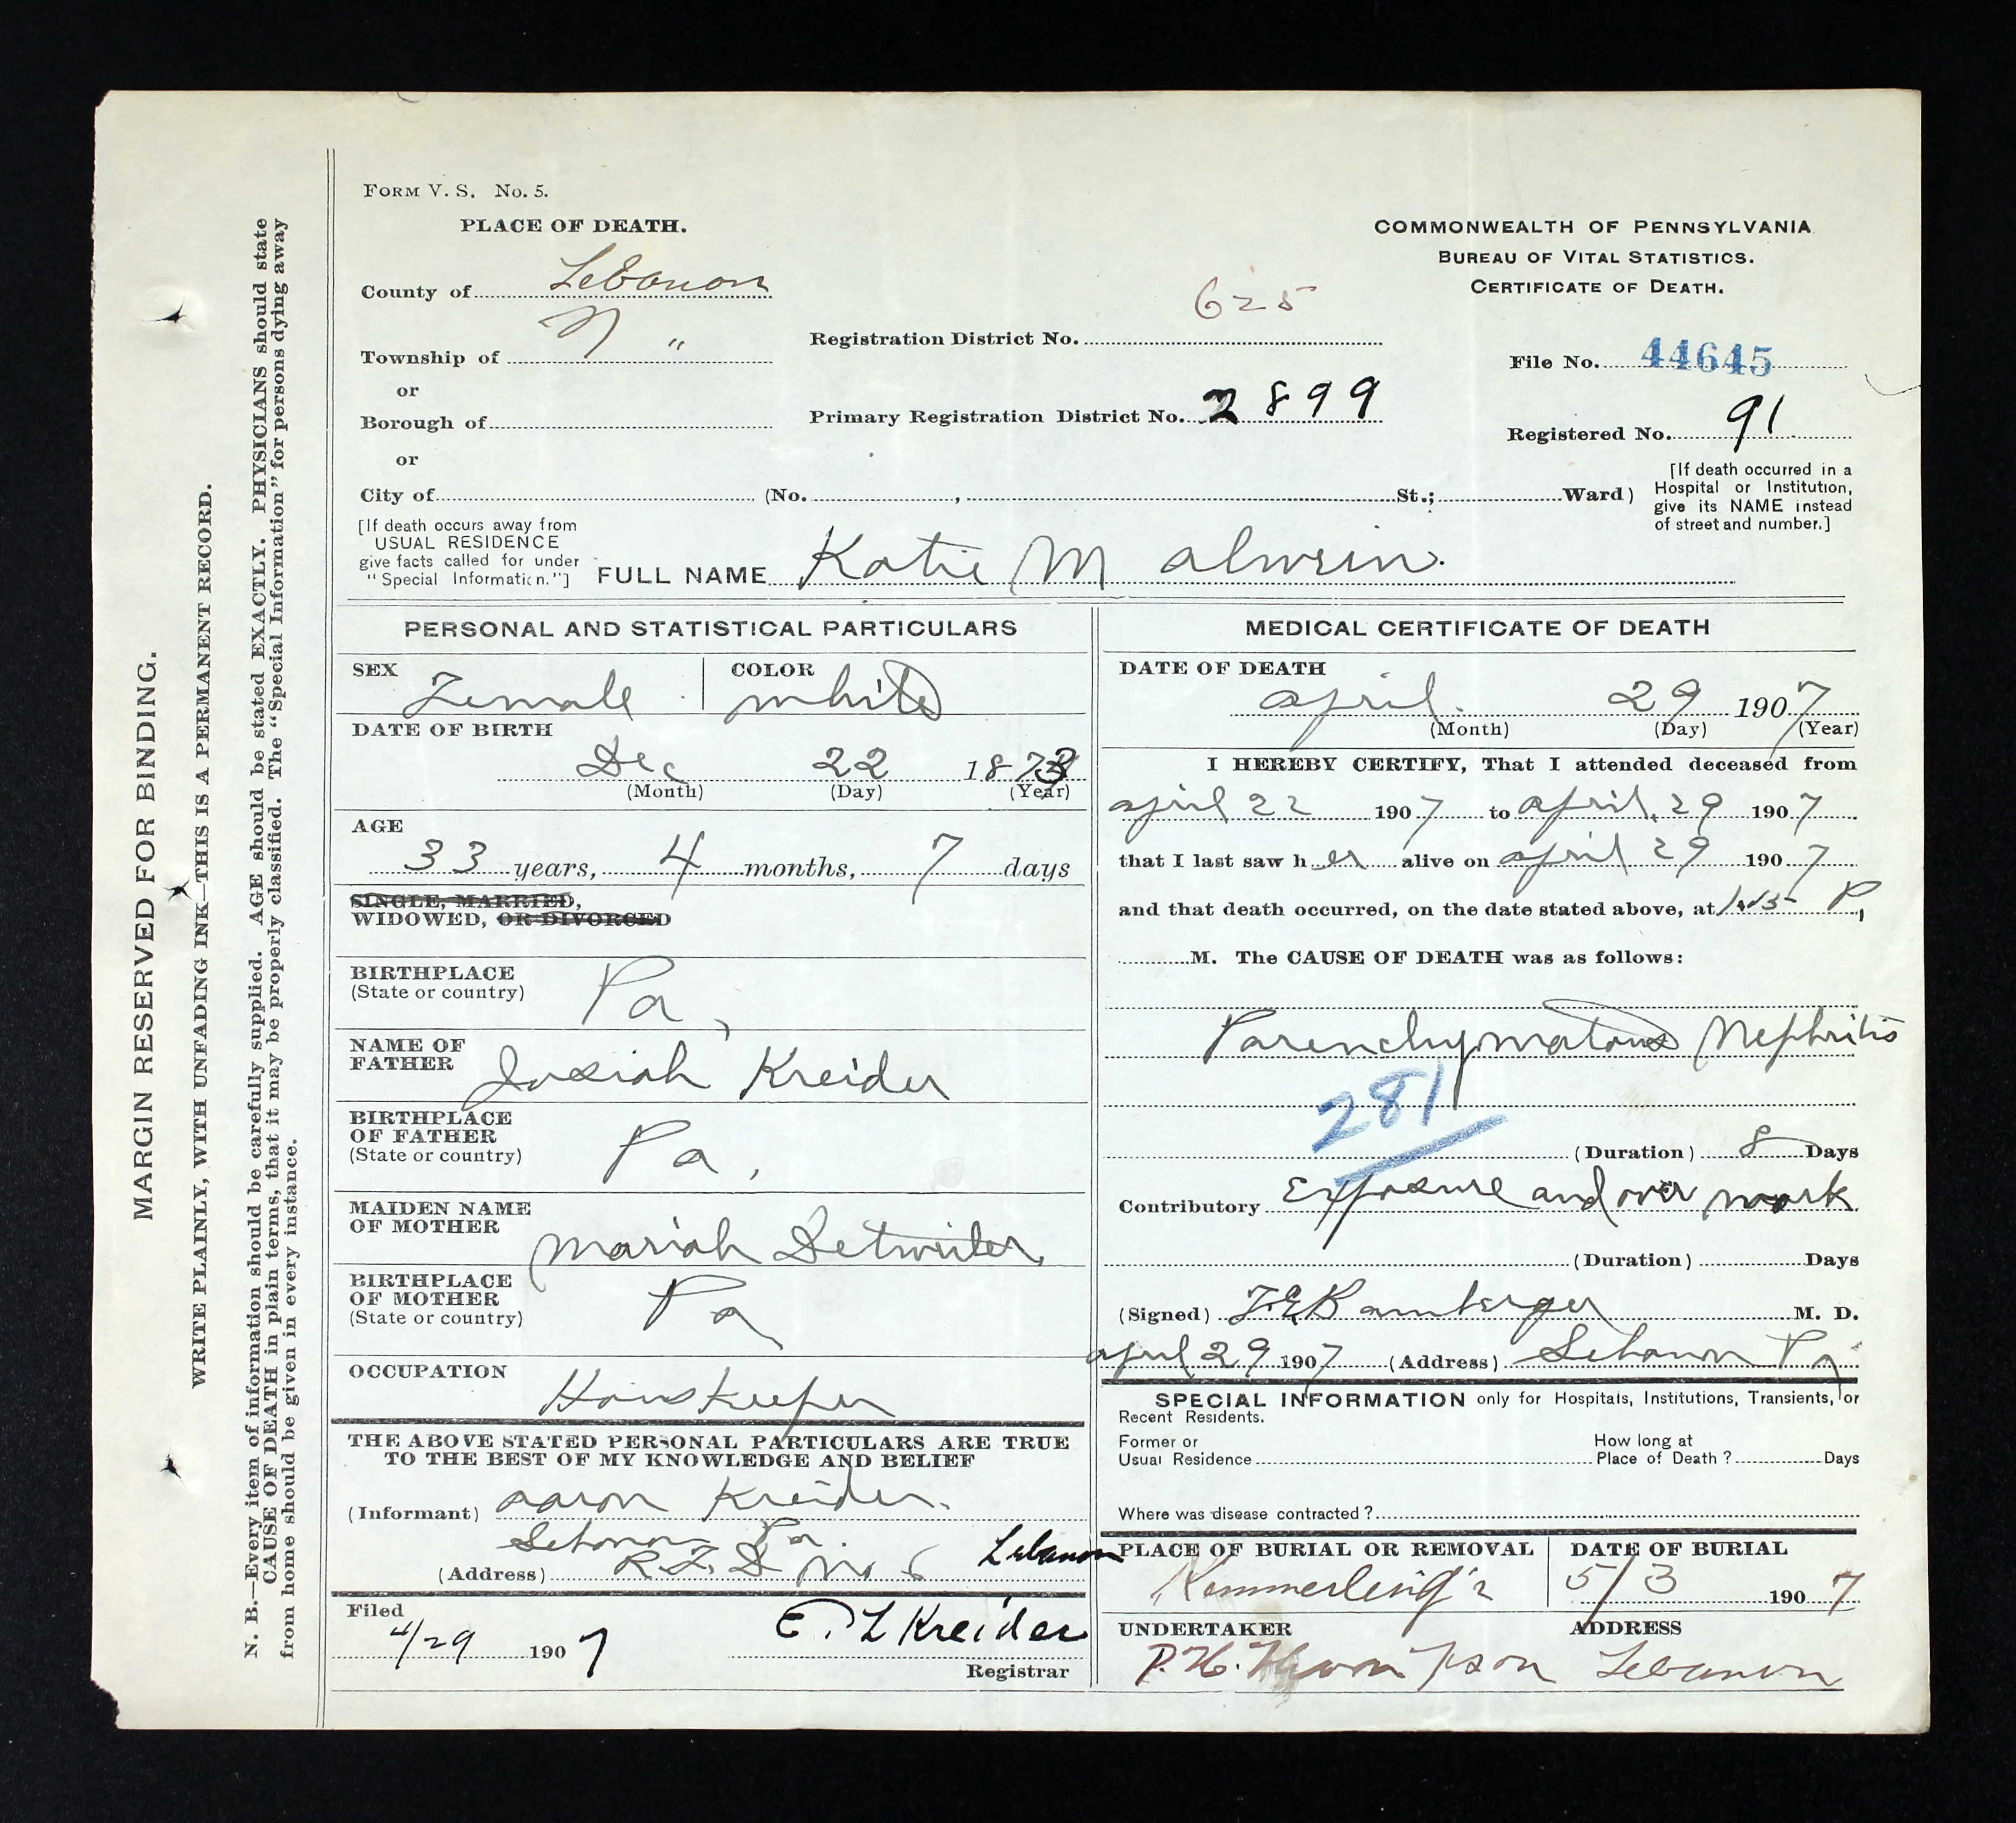 MARGIN RESERVED FOR BINDING.
WRITE PLAINLY, WITH UNFADING INK—THIS IS A PERMANENT RECORD.
N. B.—Every item of information should be carefully supplied. AGE should be stated EXACTLY. PHYSICIANS should state
CAUSE OF DEATH in plain terms, that it may be properly classified. The "Special Information" for persons dying away
from home should be given in every instance.
FORM V. S. No. 5.
PLACE OF DEATH.
County of Lebanon
Township of N "
or
Borough of
or
City of (No. , St.; Ward)
COMMONWEALTH OF PENNSYLVANIA
BUREAU OF VITAL STATISTICS.
CERTIFICATE OF DEATH.
Registration District No. 625
Primary Registration District No. 2899
File No. 44645
Registered No. 91
[If death occurred in a
Hospital or Institution,
give its NAME instead
of street and number.]
[If death occurs away from
USUAL RESIDENCE
give facts called for under
"Special Information."]
FULL NAME Katie M Alwein.
PERSONAL AND STATISTICAL PARTICULARS
SEX Female
COLOR White
DATE OF BIRTH
Dec 22 1873
(Month) (Day) (Year)
AGE
33 years, 4 months, 7 days
SINGLE, MARRIED,
WIDOWED, OR DIVORCED
BIRTHPLACE
(State or country) Pa,
NAME OF
FATHER Josiah Kreider
BIRTHPLACE
OF FATHER
(State or country) Pa,
MAIDEN NAME
OF MOTHER Mariah Detweiler
BIRTHPLACE
OF MOTHER
(State or country) Pa
OCCUPATION
Houskeeper
THE ABOVE STATED PERSONAL PARTICULARS ARE TRUE
TO THE BEST OF MY KNOWLEDGE AND BELIEF
(Informant) Aaron Kreider.
Lebanon Pa.
(Address) R.F.D No 6 Lebanon
Filed
4/29 1907 E. L Kreider
Registrar
MEDICAL CERTIFICATE OF DEATH
DATE OF DEATH
April 29 1907
(Month) (Day) (Year)
I HEREBY CERTIFY, That I attended deceased from
April 22 1907 to April, 29 1907
that I last saw h er alive on April 29 1907
and that death occurred, on the date stated above, at P,
M. The CAUSE OF DEATH was as follows:
Parenchymatous Nephritis
281
(Duration) 8 Days
Contributory Exposure and over work
(Duration) Days
(Signed) F.E Bamberger M. D.
April 29 1907 (Address) Lebanon Pa
SPECIAL INFORMATION only for Hospitals, Institutions, Transients, or
Recent Residents.
Former or
Usual Residence
How long at
Place of Death? Days
Where was disease contracted?
PLACE OF BURIAL OR REMOVAL
Kimmerling's
DATE OF BURIAL
5/3 1907
UNDERTAKER
P. H. Thompson
ADDRESS
Lebanon